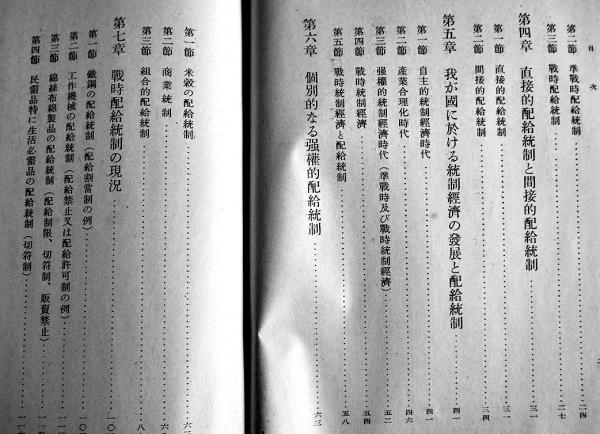 目次
二
第二節 準戰時配給統制……二四
第三節 戰時配給統制……二七
第四章 直接的配給統制と間接的配給統制……三一
第一節 直接的配給統制……三一
第二節 間接的配給統制……三四
第五章 我が國に於ける統制經濟の發展と配給統制……四一
第一節 自主的統制經濟時代……四一
第二節 產業合理化時代……四六
第三節 强權的統制經濟時代(準戰時及び戰時統制經濟)……五二
第四節 戰時統制經濟……五四
第五節 戰時統制經濟と配給統制……五八
第六章 個別的なる强權的配給統制……六三
第一節 米穀の配給統制……六
第二節 商業統制……六
第三節 組合的配給統制……八
第七章 戰時配給統制の現況……一〇
第一節 鐵鋼の配給統制(配給割當制の例)……一〇
第二節 工作機械の配給統制(配給禁止又は配給許可制の例)……一一
第三節 綿絲布綿製品の配給統制(配給制限、切符制、販賣禁止)……一一
第四節 民需品特に生活必需品の配給統制(切符制)……一一